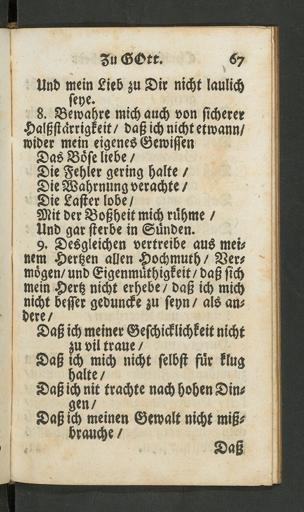 Zu GOtt. 67
Und mein Lieb zu Dir nicht laulich
seye.
8. Bewahre mich auch von sicherer
Halßstärrigkeit / daß ich nicht etwann /
wider mein eigenes Gewissen
Das Böse liebe /
Die Fehler gering halte /
Die Wahrnung verachte /
Die Laster lobe /
Mit der Boßheit mich rühme /
Und gar sterbe in Sünden.
9. Desgleichen vertreibe aus mei-
nem Hertzen allen Hochmuth / Ver-
mögen / und Eigenmüthigkeit / daß sich
mein Hertz nicht erhebe / daß ich mich
nicht besser geduncke zu seyn / als an-
dere /
Daß ich meiner Geschicklichkeit nicht
zu vil traue /
Daß ich mich nicht selbst für klug
halte /
Daß ich nit trachte nach hohen Din-
gen /
Daß ich meinen Gewalt nicht miß-
brauche /
Daß